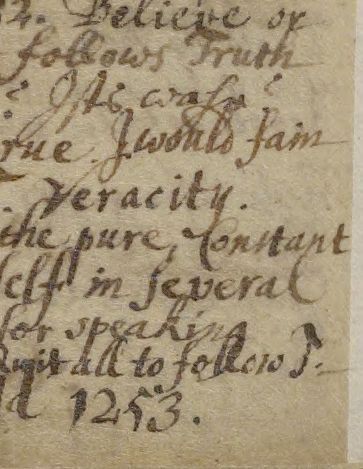 2. Believe or
follows Truth
rue. I would fain
veracity.
the pure, Constant
self in several
for speaking
Quit all to follow T.
1253.